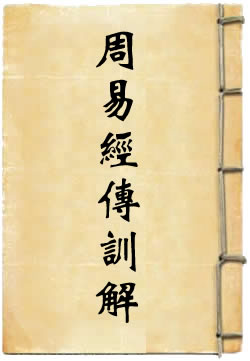 周易經傳訓解